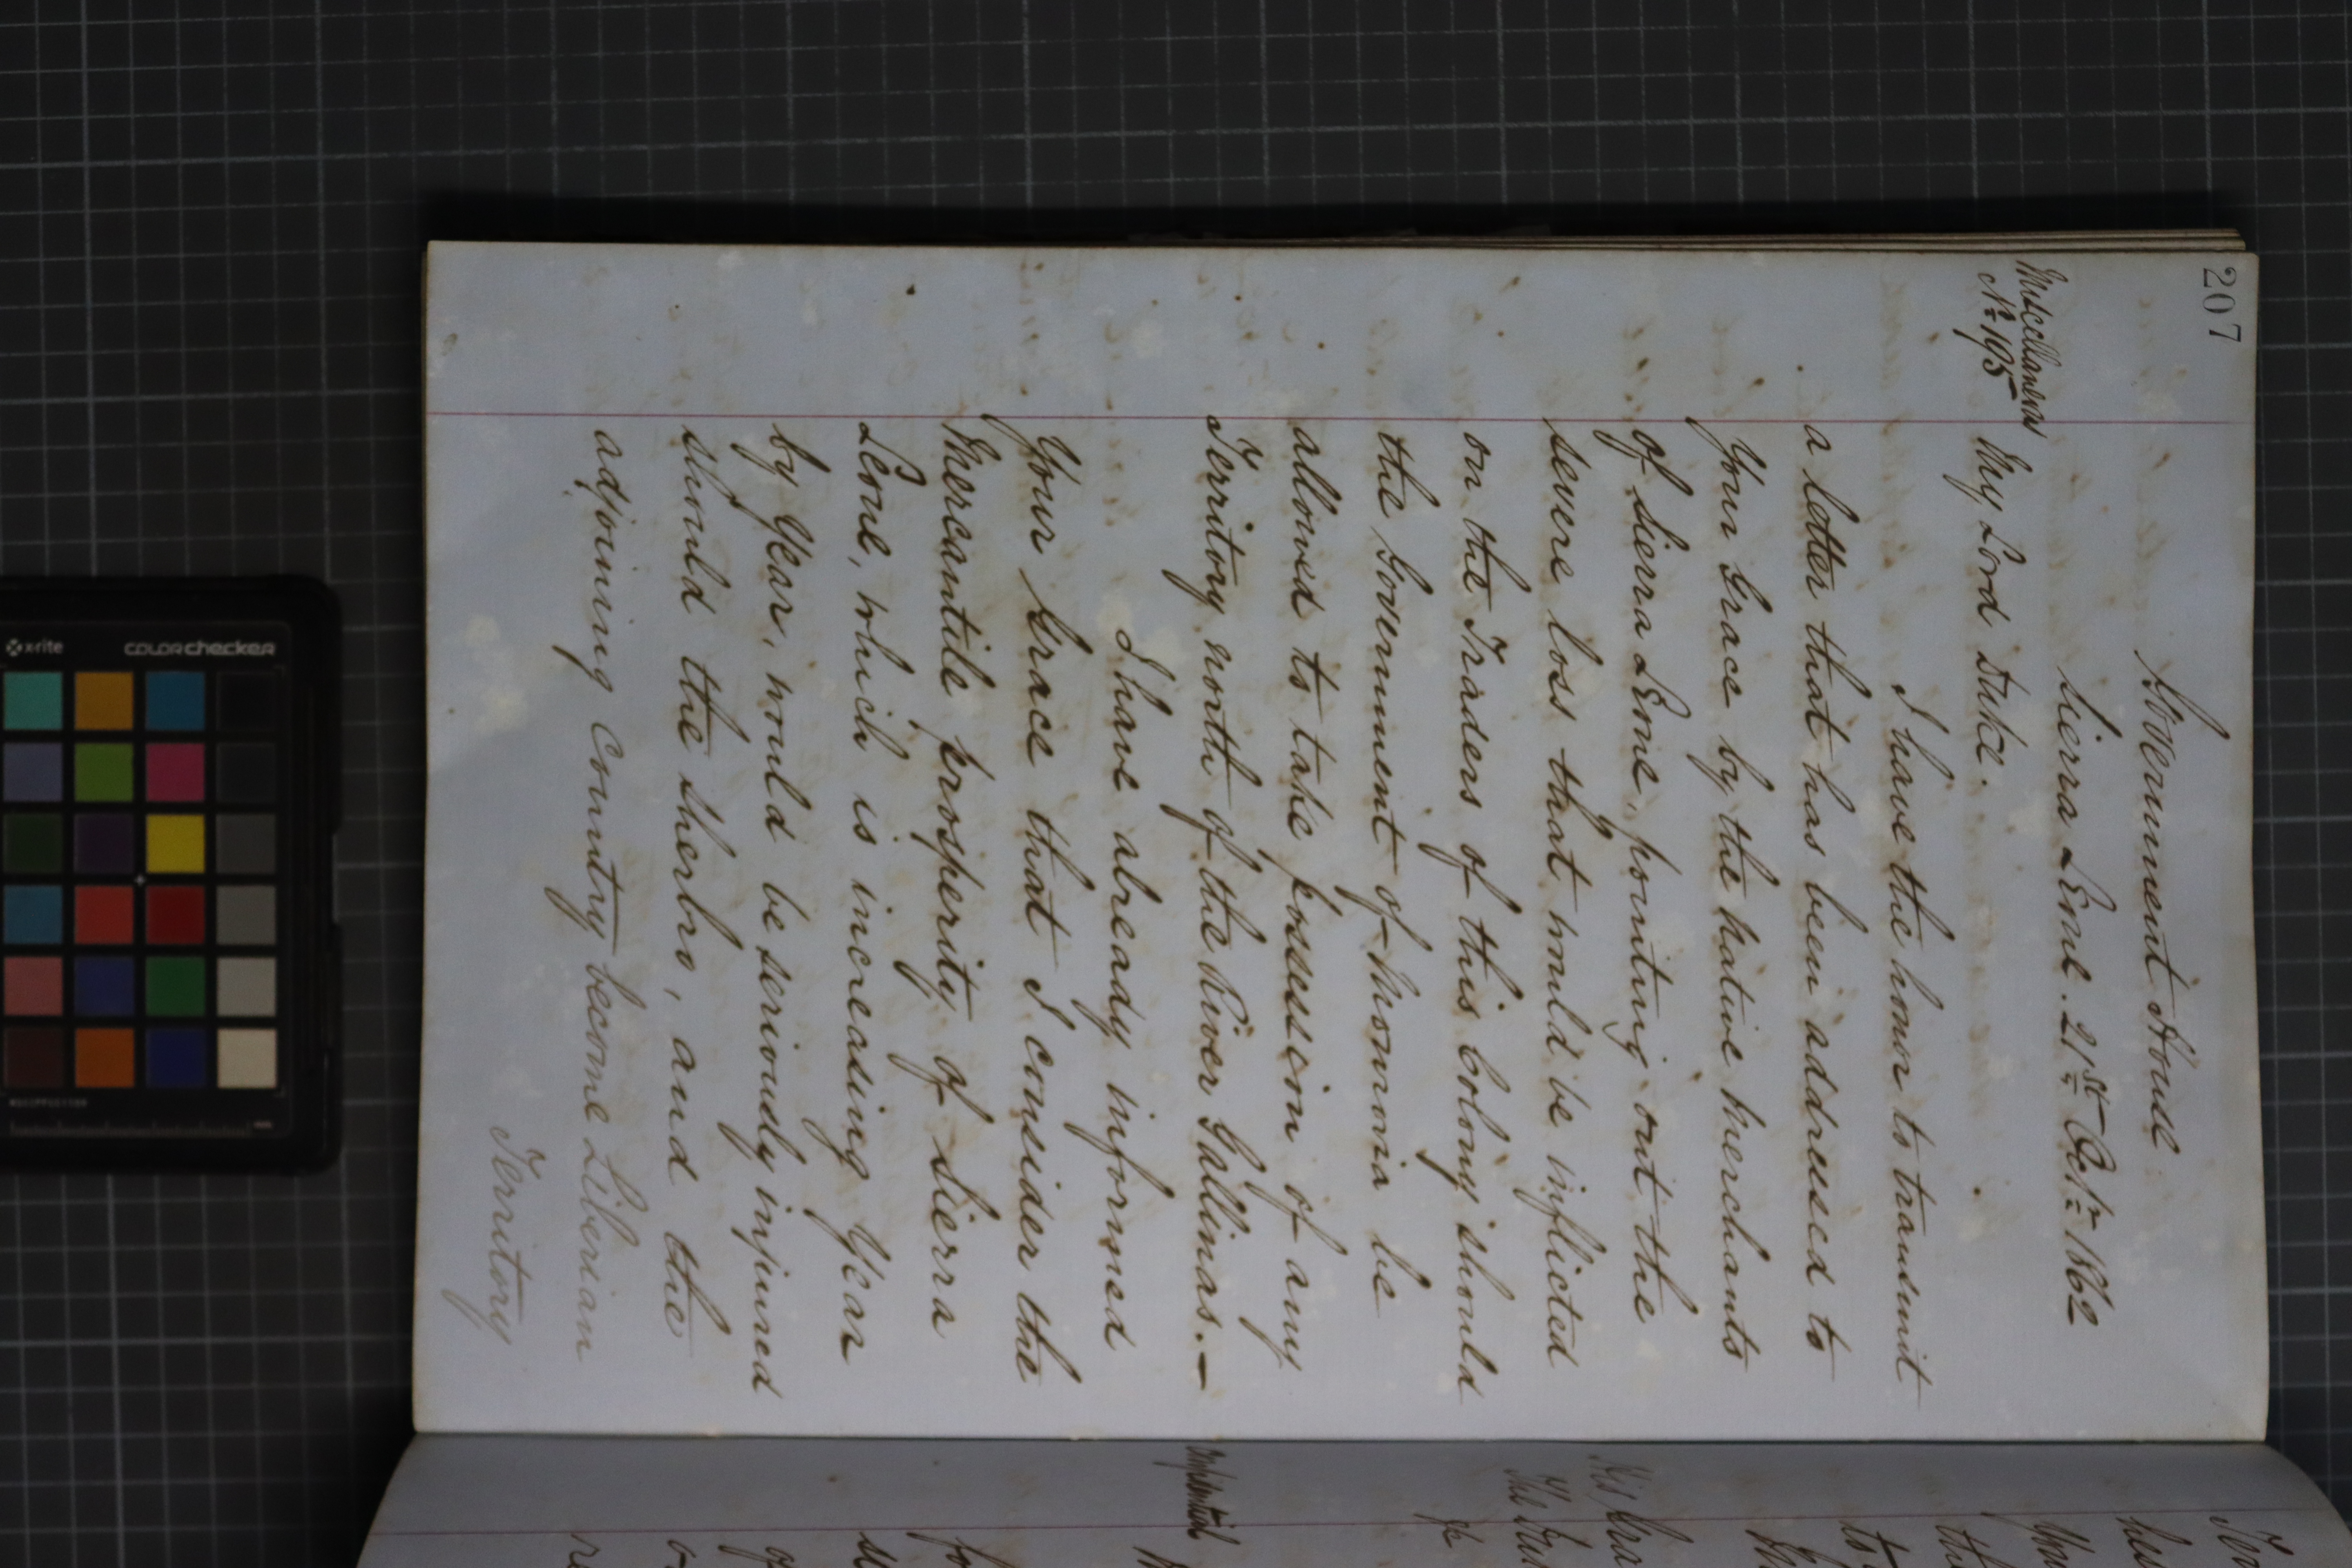 207
Government House
Sierra Leone. 21st Octr 1862
Miscellaneous
No 195
My Lord Duke.
I have the honor to transmit
a letter that has been addressed to
Your Grace by the Native Merchants
of Sierra Leone, pointing out the
severe loss that would be inflicted
on the Traders of this Colony should
the Government of Monrovia be
allowed to take possession of any
Territory north of the River Gallinas.—
I have already informed
Your Grace that I consider the
Mercantile prosperity of Sierra
Leone, which is increasing Year
by Year, would be seriously injured
should the Sherbro, and the
adjoining Country become Liberian
Territory
To
the
to
His Gra
The
Confidential
fo
of
x-rite
colorchecker